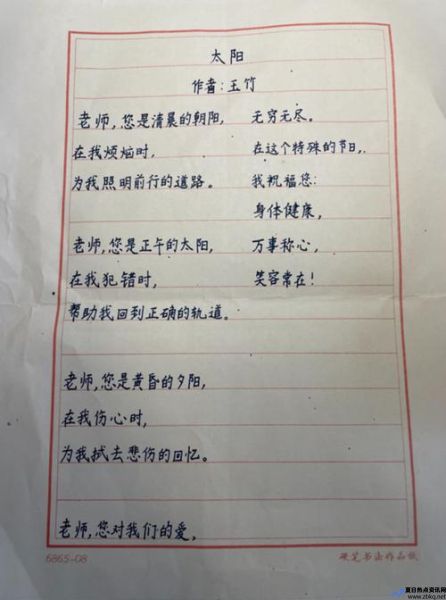 太阳
作者：王竹
老师，您是清晨的朝阳，
在我烦恼时，
为我照明前行的道路。
老师，您是正午的太阳，
在我犯错时，
帮助我回到正确的轨道。
老师，您是黄昏的夕阳，
在我伤心时，
为我拭去悲伤的回忆。
老师，您对我们的爱，
无穷无尽。
在这个特殊的节日，
我祝福您：
身体健康，
万事称心，
笑容常在！
6865-08
硬笔书法作品纸
夏日热点资讯网
www.zbkq.net